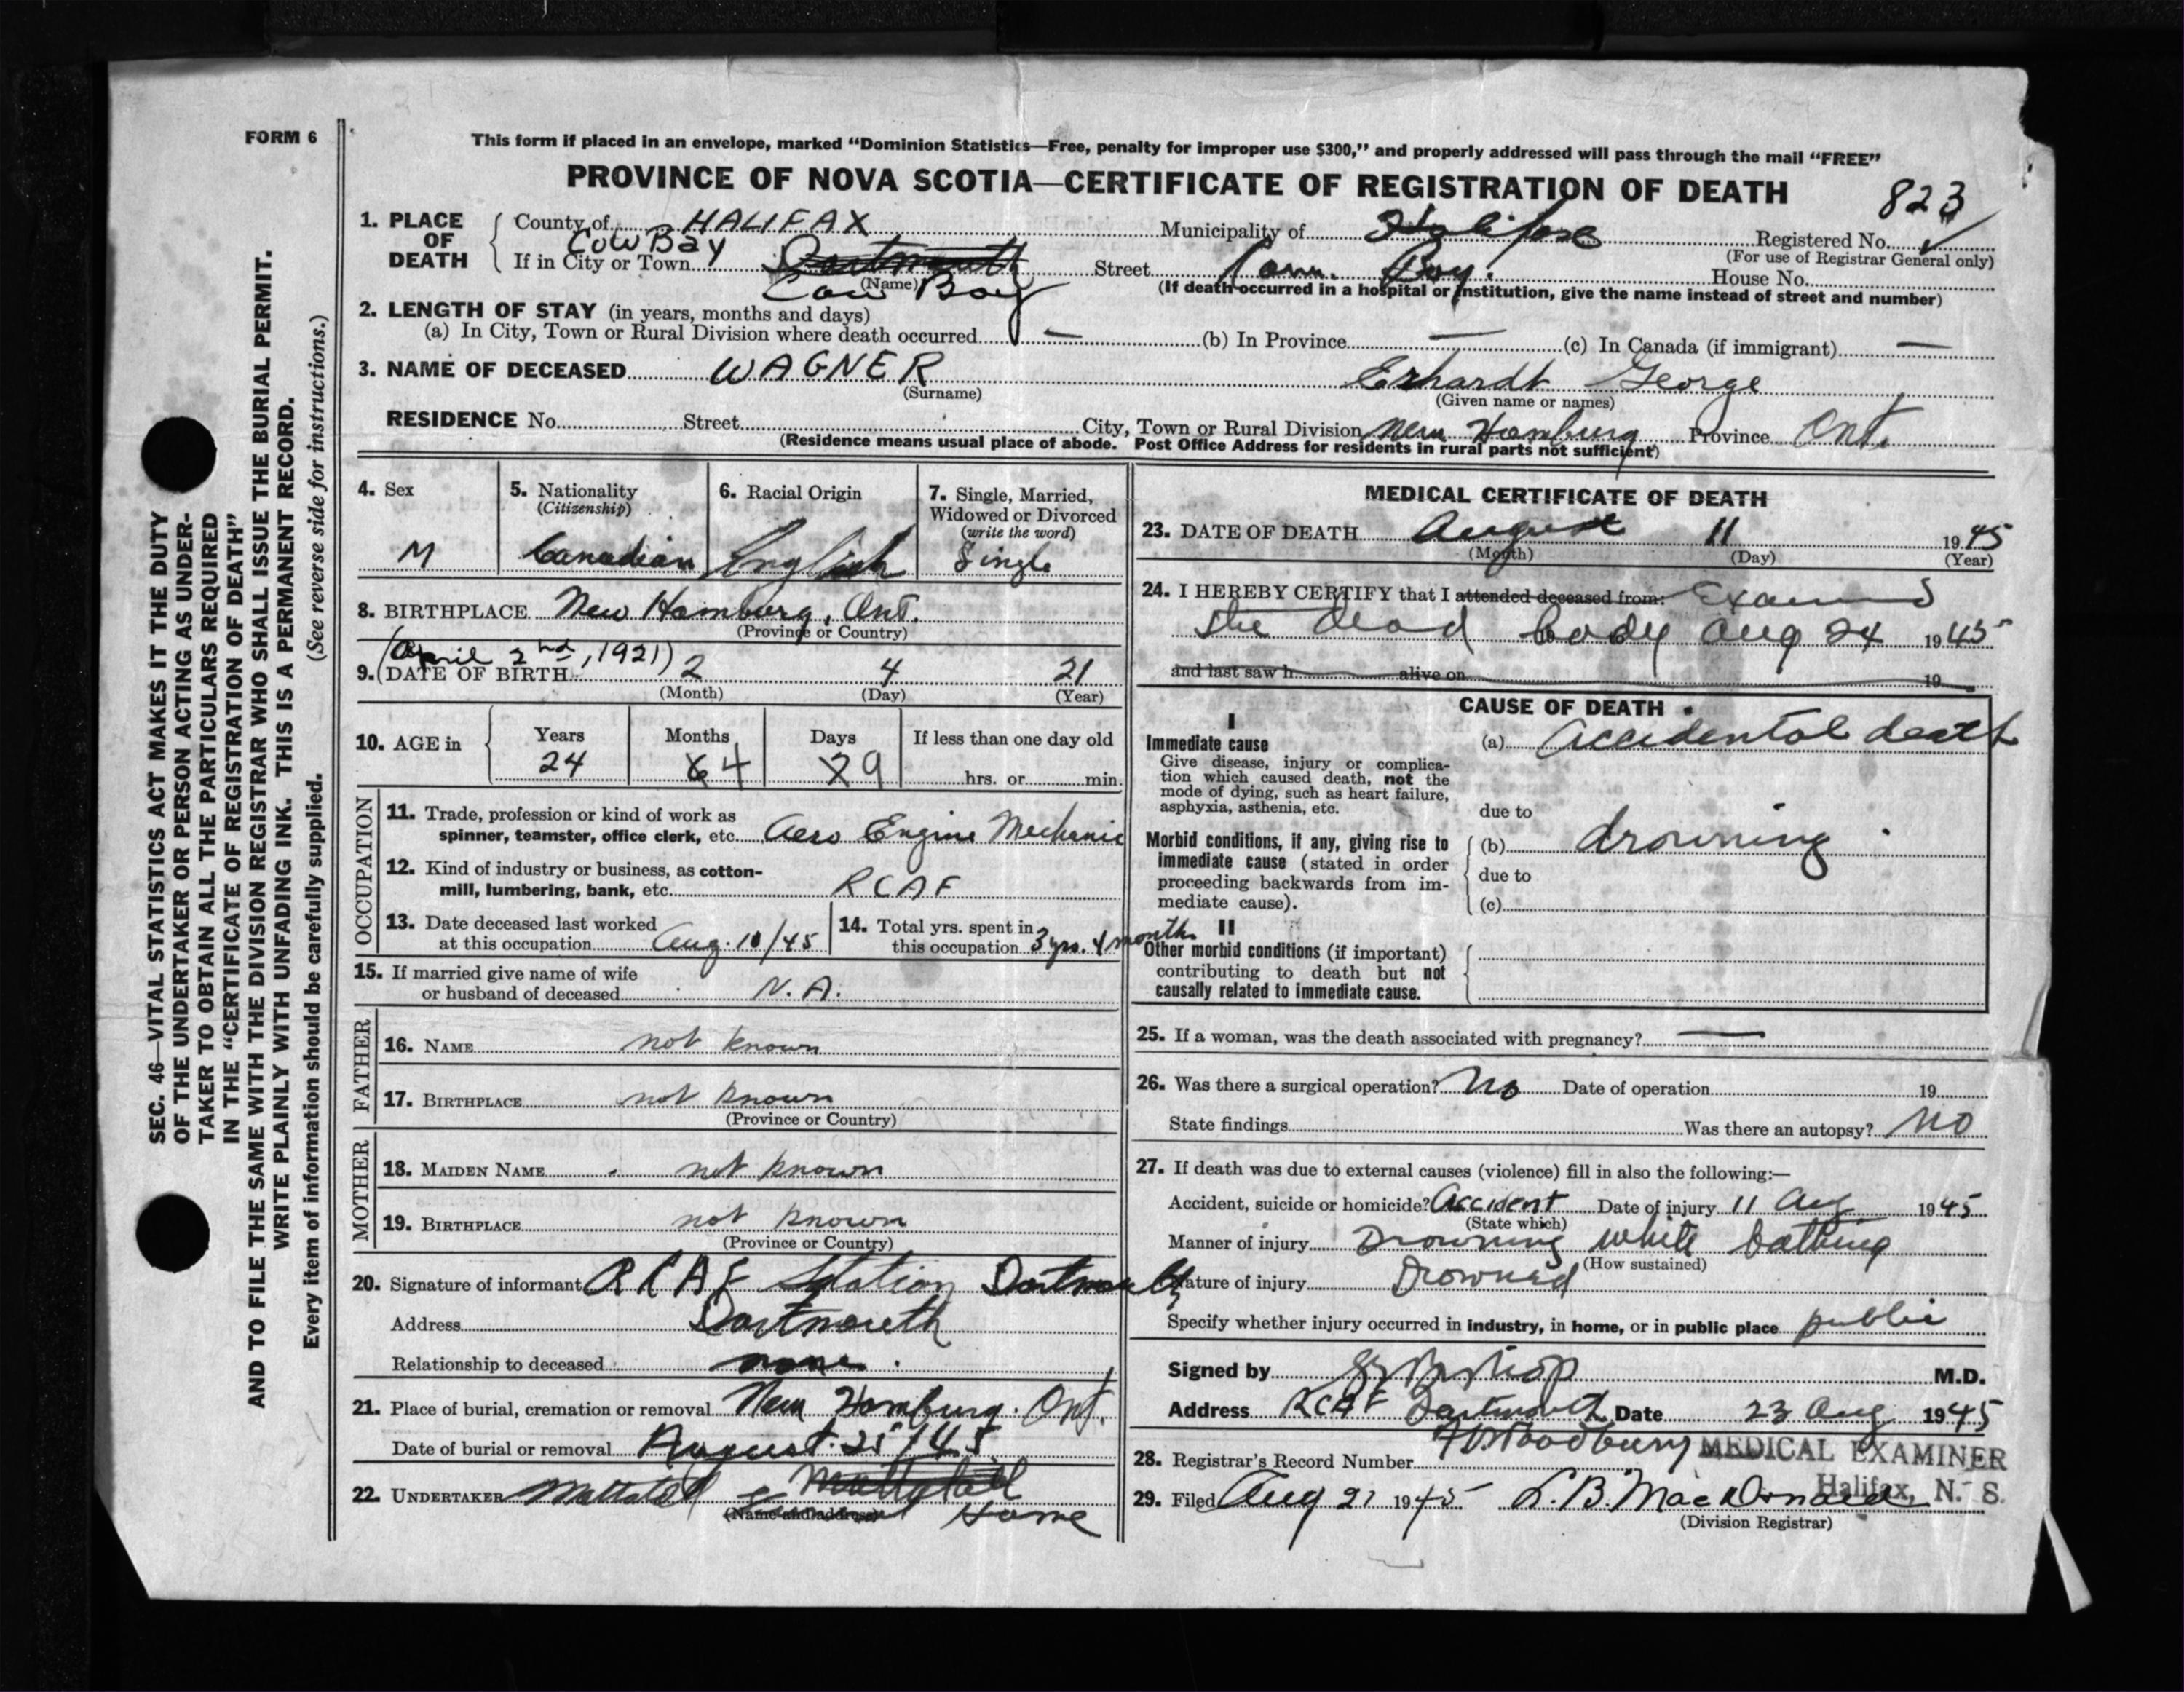 FORM 6
This form if placed in an envelope, marked "Dominion Statistics—Free, penalty for improper use $300," and properly addressed will pass through the mail "FREE"
PROVINCE OF NOVA SCOTIA—CERTIFICATE OF REGISTRATION OF DEATH
823
1. PLACE OF DEATH
County of HALIFAX Municipality of Halifax Registered No. ✓
(For use of Registrar General only)
Cow Bay
If in City or Town Dartmouth Street Cow Bay. House No.
(Name) Cow Bay
(If death occurred in a hospital or institution, give the name instead of street and number)
2. LENGTH OF STAY (in years, months and days)
(a) In City, Town or Rural Division where death occurred — (b) In Province — (c) In Canada (if immigrant) —
3. NAME OF DECEASED WAGNER Erhardt George
(Surname) (Given name or names)
RESIDENCE No. Street City, Town or Rural Division New Hamburg Province Ont.
(Residence means usual place of abode. Post Office Address for residents in rural parts not sufficient)
4. Sex
M
5. Nationality
(Citizenship)
Canadian
6. Racial Origin
English
7. Single, Married,
Widowed or Divorced
(write the word)
Single
8. BIRTHPLACE New Hamburg, Ont.
(Province or Country)
(April 2nd, 1921)
9. DATE OF BIRTH 2 4 21
(Month) (Day) (Year)
10. AGE in
Years Months Days If less than one day old
24 4 9 hrs. or min.
OCCUPATION
11. Trade, profession or kind of work as
spinner, teamster, office clerk, etc. Aero Engine Mechanic
12. Kind of industry or business, as cotton-
mill, lumbering, bank, etc. RCAF
13. Date deceased last worked
at this occupation Aug. 10/45
14. Total yrs. spent in
this occupation 3 yrs. 4 months
15. If married give name of wife
or husband of deceased N. A.
FATHER
16. NAME not known
17. BIRTHPLACE not known
(Province or Country)
MOTHER
18. MAIDEN NAME not known
19. BIRTHPLACE not known
(Province or Country)
20. Signature of informant RCAF Station Dartmouth
Address Dartmouth
Relationship to deceased none.
21. Place of burial, cremation or removal New Hamburg. Ont.
Date of burial or removal August 25/45
22. UNDERTAKER Mattatall & Mattatall
(Name and address) Home
MEDICAL CERTIFICATE OF DEATH
23. DATE OF DEATH August 11 1945
(Month) (Day) (Year)
24. I HEREBY CERTIFY that I attended deceased from: Examined
the dead body Aug 24 1945
and last saw h alive on 19
CAUSE OF DEATH
I
Immediate cause
Give disease, injury or complica-
tion which caused death, not the
mode of dying, such as heart failure,
asphyxia, asthenia, etc.
(a) Accidental death
due to
Morbid conditions, if any, giving rise to
immediate cause (stated in order
proceeding backwards from im-
mediate cause).
(b) drowning.
due to
(c)
II
Other morbid conditions (if important)
contributing to death but not
causally related to immediate cause.
25. If a woman, was the death associated with pregnancy? —
26. Was there a surgical operation? No Date of operation 19
State findings Was there an autopsy? NO
27. If death was due to external causes (violence) fill in also the following:—
Accident, suicide or homicide? Accident Date of injury 11 Aug 1945
(State which)
Manner of injury Drowning while bathing
(How sustained)
Nature of injury Drowned
Specify whether injury occurred in industry, in home, or in public place public
Signed by M.D.
Address RCAF Dartmouth Date 23 Aug 1945
Woodbury MEDICAL EXAMINER
28. Registrar's Record Number
Halifax, N. S.
29. Filed Aug 27 1945 L. B. MacDonald
(Division Registrar)
SEC. 46—VITAL STATISTICS ACT MAKES IT THE DUTY
OF THE UNDERTAKER OR PERSON ACTING AS UNDER-
TAKER TO OBTAIN ALL THE PARTICULARS REQUIRED
IN THE "CERTIFICATE OF REGISTRATION OF DEATH"
AND TO FILE THE SAME WITH THE DIVISION REGISTRAR WHO SHALL ISSUE THE BURIAL PERMIT.
WRITE PLAINLY WITH UNFADING INK. THIS IS A PERMANENT RECORD.
Every item of information should be carefully supplied. (See reverse side for instructions.)